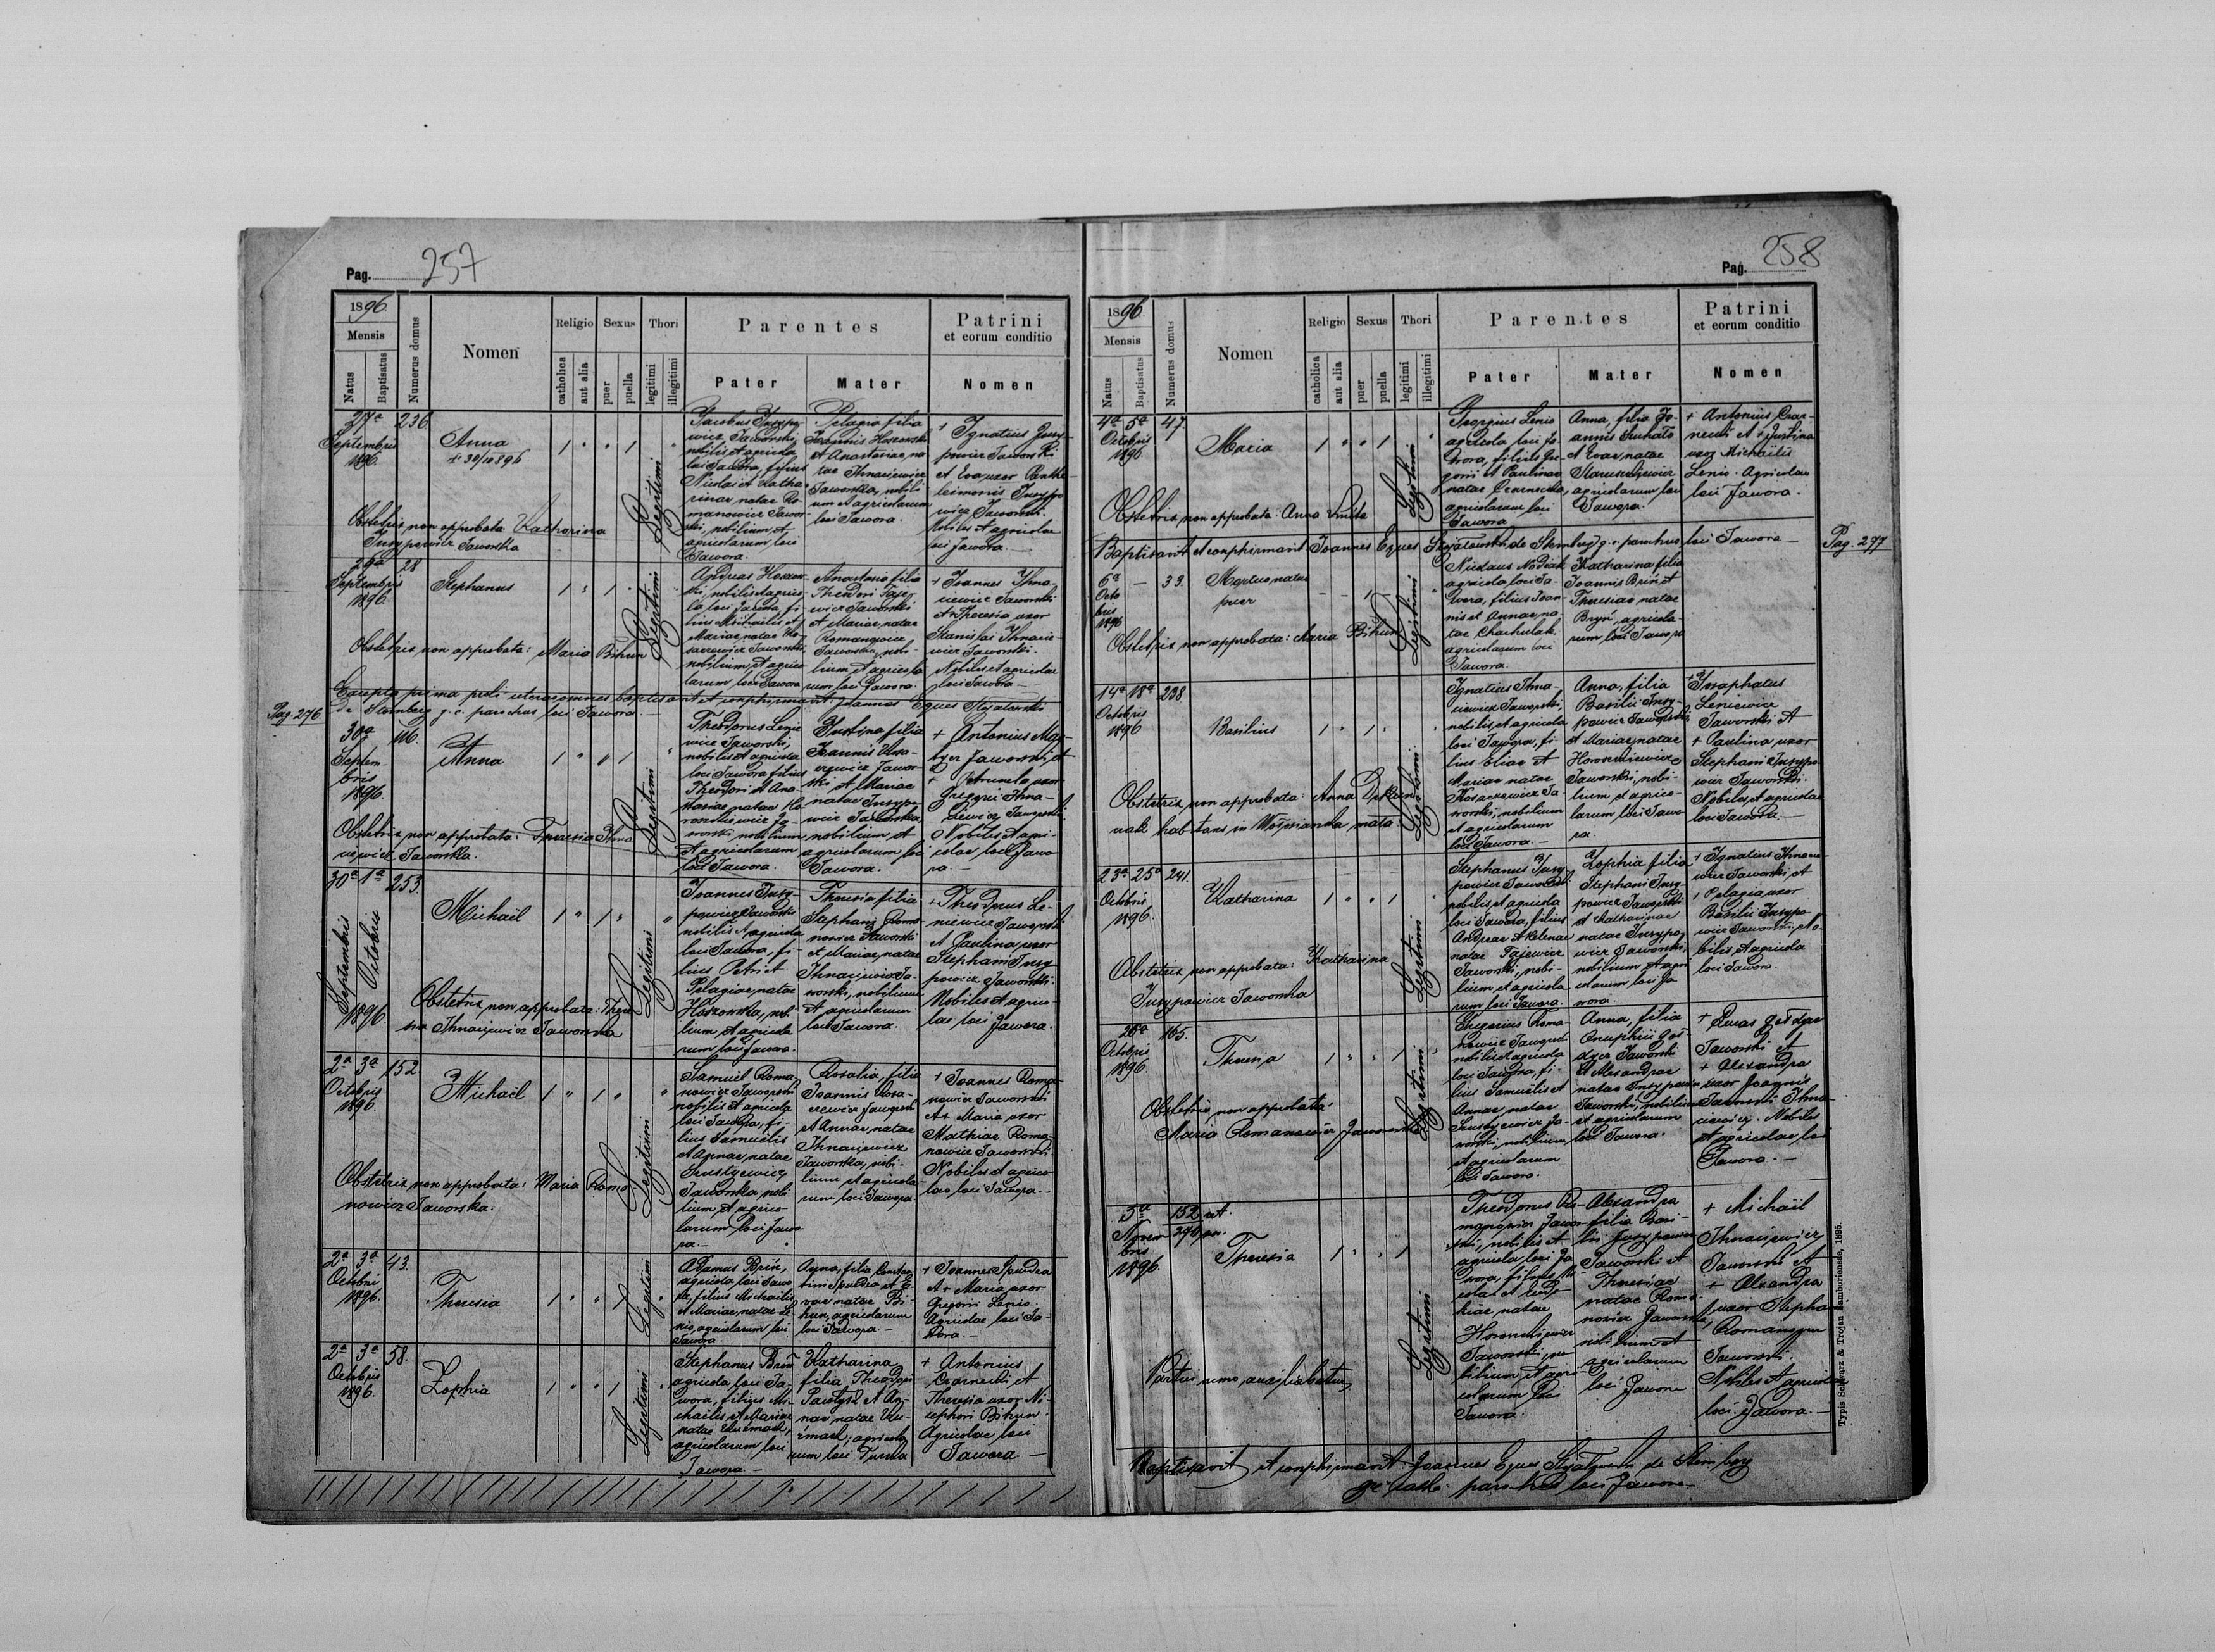 Pag. 257
1896
Mensis
Natus
Baptisatus
Numerus domus
Nomen
Religio
catholica
aut alia
Sexus
puer
puella
Thori
legitimi
illegitimi
Parentes
Pater
Mater
Patrini
et eorum conditio
Nomen
27a
Septembris
1896
236
Anna
+ 30/10 896
Legitimi
Jacobus Jusypo-
wicz Jaworski,
nobilis et agricola
loci Jawora, filius
Nicolai et Katha-
rinae natae Ro-
manowicz Jawor-
ski, nobilium et
agricolarum loci
Jawora.
Pelagia filia
Joannis Hoszowski
et Anastasiae na-
tae Ihnaciewicz
Jaworska, nobili-
um et agricolarum
loci Jawora.
+ Ignatius Jusy-
powicz Jaworski
et Eva uxor Pante-
leimonis Jusypo-
wicz Jaworski.
Nobiles et agricolae
loci Jawora.
Obstetrix non approbata Katharina
Jusypowicz Jaworska
Septembris
1896
28
Stephanus
Legitimi
Andreas Hoszow-
ski, nobilis et agrico-
la loci Jawora, fi-
lius Michaelis et
Mariae natae
Jaworski,
nobilium et agrico-
larum loci Jawora
Anastasia filia
Theodori Faje-
wicz Jaworski
et Mariae, natae
Romanowicz
Jaworska, nobi-
lium et agricola-
rum loci Jawora.
+ Joannes Ihna-
ciewicz Jaworski
et + Theresia uxor
Stanislai Ihnacie-
wicz Jaworski.
Nobiles et agricolae
loci Jawora
Obstetrix non approbata: Maria Bihun
Excepta prima proli ceteras omnes baptisavit et confirmavit: Joannes Eques
de Sternberg g. c. parochus loci Jawora.
Pag. 276.
30a
Septem-
bris
1896.
Anna
Legitimi
Theodorus Lenie-
wicz Jaworski,
nobilis et agricola
loci Jawora filius
Theodori et Ana-
stasiae natae
Ja-
worski nobilium
et agricolarum
loci Jawora.
Justina filia
Joannis Kosa-
czewicz Jawor-
ski et Mariae
natae Jusypo-
wicz Jaworska,
nobilium et
agricolarum loci
Jawora.
+ Antonius
Jaworski, et
+ Petrunela uxor
Gregorii Ihna-
ciewicz Jaworski.
Nobiles et agri-
colae loci Jawo-
ra.
Obstetrix non approbata: Theresia Ihna-
ciewicz Jaworska.
30a 1a
Septembris
Octobris
1896
253
Michael
Legitimi
Joannes Jusy-
powicz Jaworski
nobilis et agricola
loci Jawora, fi-
lius Petri et
Pelagiae, natae
Hoszowska, nobi-
lium et agricola-
rum loci Jawora.
Theresia filia
Stephani Roma-
nowicz Jaworski
et Mariae, natae
Ihnaciewicz Ja-
worski, nobilium
et agricolarum
loci Jawora.
+ Theodorus Le-
niewicz Jaworski
et Paulina uxor
Stephani Jusy-
powicz Jaworski.
Nobiles et agrico-
lae loci Jawora.
Obstetrix non approbata: There-
sia Ihnaciewicz Jaworska
2a 3a
Octobris
1896.
152
Michael
Legitimi
Samuel Roma-
nowicz Jaworski
nobilis et agricola
loci Jawora, fi-
lius Samuelis
et Annae, natae
Jaworska nobi-
lium et agrico-
larum loci Jawo-
ra.
Rosalia, filia
Joannis Kosa-
czewicz Jaworski
et Annae, natae
Ihnaciewicz
Jaworska, nobi-
lium et agricola-
rum loci Jawora.
+ Joannes Roma-
nowicz Jaworski
et + Maria uxor
Mathiae Roma-
nowicz Jaworski.
Nobiles et agrico-
lae loci Jawora.
Obstetrix non approbata: Maria Roma-
nowicz Jaworska.
2a 3a
Octobris
1896.
43.
Theresia
Legitimi
Adamus Brin,
agricola loci Jawo-
ra, filius Michaelis
et Mariae, natae Le-
nio, agricolarum loci
Jawora
Anna, filia Constan-
tini Spuda et E-
vae natae Bi-
hun, agricolarum
loci Jawora
+ Joannes Spuda
et + Maria uxor
Gregorii Lenio.
Agricolae loci Ja-
wora.
2a 3a
Octobris
1896.
58.
Zophia
Legitimi
Stephanus Brin
agricola loci Ja-
wora, filius Mi-
chaelis et Mariae
natae
agricolarum loci
Jawora
Katharina
filia Theodori
et An-
nae, natae
agricola-
rum loci Turka
+ Antonius
Czarnecki et
Theresia uxor Ni-
cephori Bihun.
Agricolae loci
Jawora
Pag. 258
1896
Mensis
Natus
Baptisatus
Numerus domus
Nomen
Religio
catholica
aut alia
Sexus
puer
puella
Thori
legitimi
illegitimi
Parentes
Pater
Mater
Patrini
et eorum conditio
Nomen
4a 5a
Octobris
1896
47.
Maria
Legitimi
Georgius Lenio
agricola loci Ja-
wora, filius Gre-
gorii et Paulinae
natae Czarnecka,
agricolarum loci
Jawora
Anna, filia Jo-
annis
et Evae, natae
agricolarum loci
Jawora.
+ Antonius Czar-
necki et + Justina
uxor Michaelis
Lenio. Agricolae
loci Jawora.
Obstetrix non approbata: Anna
Baptisavit et confirmavit Joannes Eques de Sternberg g. c. parochus loci Jawora
Pag. 277
6a
Octo-
bris
1896
33.
Mortuo natus
puer
Legitimi
Nicolaus
agricola loci Ja-
wora, filius Joan-
nis et Annae, na-
tae
agricolarum loci
Jawora.
Katharina filia
Joannis Brin, et
Theresiae, natae
Bryn, agricola-
rum loci Jawora
Obstetrix non approbata: Maria Bihun
14a 18a
Octobris
1896
238
Basilius
Legitimi
Ignatius Ihna-
ciewicz Jaworski,
nobilis et agricola
loci Jawora, fi-
lius Eliae et
Mariae natae
Kosaczewicz Ja-
worski, nobilium
et agricolarum
loci Jawora.
Anna, filia
Basilii Jusy-
powicz Jaworski
et Mariae, natae
Jaworski, nobi-
lium et agrico-
larum loci Jawo-
ra.
+ Josaphatus
Leniewicz
Jaworski et
+ Paulina uxor
Stephani Jusypo-
wicz Jaworski.
Nobiles et agricolae
loci Jawora.
Obstetrix non approbata: Anna
habitans in
23a 25a
Octobris
1896.
241.
Katharina
Legitimi
Stephanus Jusy-
powicz Jaworski
nobilis et agricola
loci Jawora, filius
Andreae et Helenae
natae Fajewicz
Jaworski, nobi-
lium et agricola-
rum loci Jawora.
Zophia filia
Stephani Jusy-
powicz Jaworski
et Katharinae
natae Jusypo-
wicz Jaworski,
nobilium et agri-
colarum loci Ja-
wora.
+ Ignatius Ihnacie-
wicz Jaworski, et
+ Pelagia uxor
Basilii Jusypo-
wicz Jaworski, No-
bilis et agricola
loci Jawora.
Obstetrix non approbata: Katharina
Jusypowicz Jaworska
Octobris
1896.
165.
Theresia
Legitimi
Gregorius Roma-
nowicz Jaworski
nobilis et agricola
loci Jawora, fi-
lius Samuelis et
Annae natae
Ja-
worski, nobilium
et agricolarum
loci Jawora.
Anna, filia
Onuphrii
Jaworski
et Alexandrae
natae Jusypowicz
Jaworski, nobilium
et agricolarum
loci Jawora.
+ Lucas
Jaworski et
+ Alexandra
uxor Joannis
Jaworski Ihna-
ciewicz. Nobiles
et agricolae loci
Jawora.
Obstetrix non approbata:
Maria Romanowicz Jaworska
5a
Novem-
bris
1896
152
Theresia
Legitimi
Theodorus Ro-
manowicz Jawor-
ski, nobilis et
agricola loci Ja-
wora, filius
natae
Jaworski, no-
bilium et agri-
colarum loci
Jawora.
Alexandra
filia Basi-
lii Jusypowicz
Jaworski et
Theresiae
natae Roma-
nowicz Jaworska,
nobilium et
agricolarum
loci Jawora
+ Michail
Ihnaciewicz
Jaworski et
+ Alexandra
uxor Stephani
Romanowicz
Jaworski.
Nobiles et agricolae
loci Jawora.
Partui nemo auxiliabatur
Baptisavit et confirmavit Joannes Eques de Sternberg
gr. cath. parochus loci Jawora
Typis Schwarz & Trojan Samboriense, 1895.